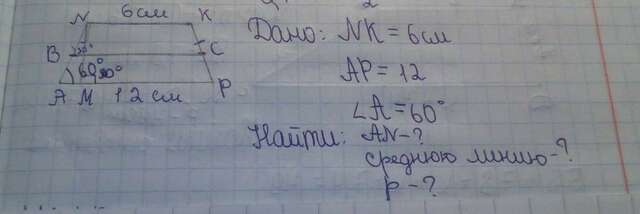 N 6 см K
B C
60°
A M 12 см P
Дано: NK = 6 см
AP = 12
∠A = 60°
Найти: AN - ?
среднюю линию - ?
P - ?